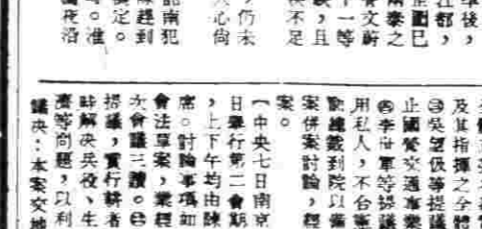 後，
江都，
企圖已
泰之
營文蔚
十一等
，且
決不足
，仍未
心尙
記南犯
趕到
定。
。淮
夜沿
及其指揮之全體
㊂吳望伋等提議
止國營交通事業
㊃李世軍等提議
用私人，不合憲
院以備
案併案討論，經
案。
（中央七日南京
日舉行第二會期
，上下午均由陳
席。討論事項如
會法草案，業經
次會議三讀。㊁
提議，實行耕者
時解决兵役、生
產等問題，以利
議决：本案交地